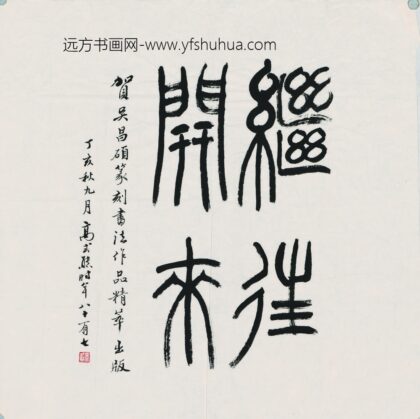 远方书画网-www.yfshuhua.com
繼往
開來
賀吴昌碩篆刻書法作品精華出版
丁亥秋九月高式熊時年八十有七